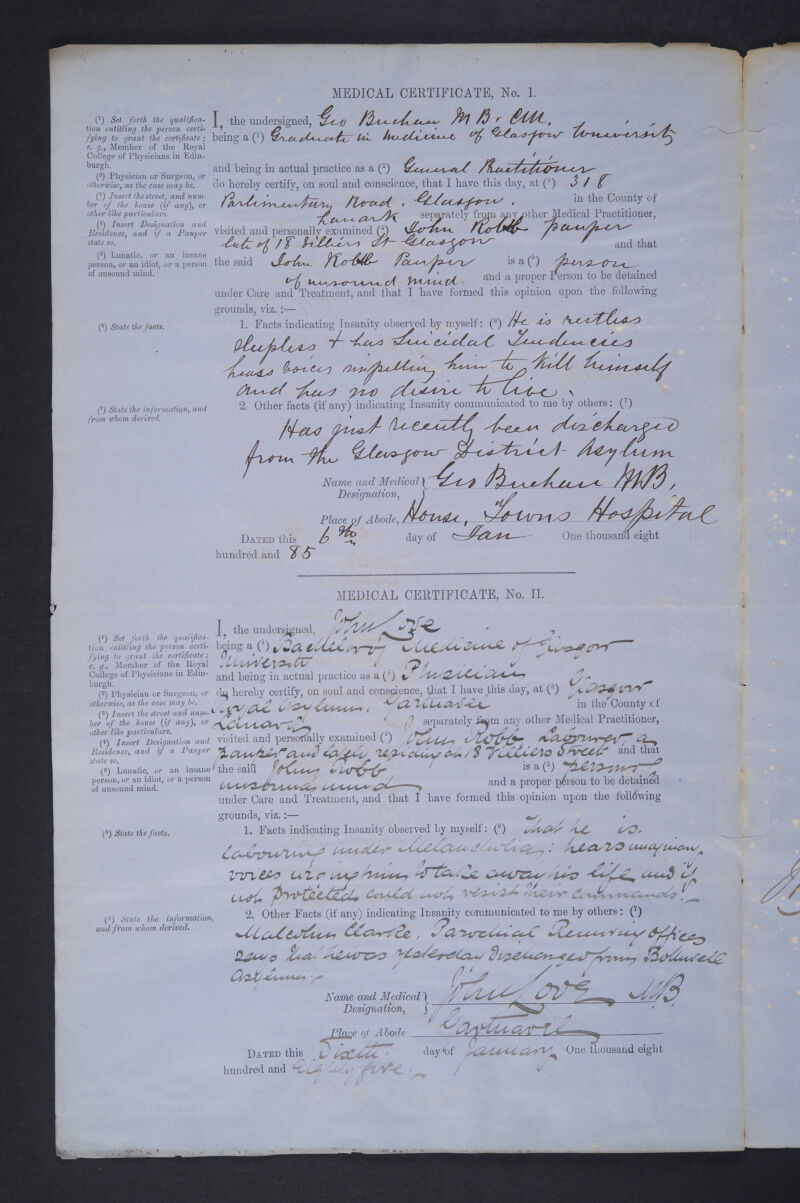 MEDICAL CERTIFICATE, No. I.
(1) Set forth the qualifica-
tion entitling the person certi-
fying to grant the certificate;
e. g., Member of the Royal
College of Physicians in Edin-
burgh.
(2) Physician or Surgeon, or
otherwise, as the case may be.
(3) Insert the street, and num-
ber of the house (if any), or
other like particulars.
(4) Insert Designation and
Residence, and if a Pauper
state so.
(5) Lunatic, or an insane
person, or an idiot, or a person
of unsound mind.
I, the undersigned, Geo Buchan M B. CM.
being a (1) Graduate in Medicine of Glasgow University
and being in actual practice as a (2) General Practitioner
do hereby certify, on soul and conscience, that I have this day, at (3) 318
Parlimentary Road. Glasgow. in the County of
Lanark separately from any other Medical Practitioner,
visited and personally examined (4) John Robb pauper
late of 18 Villiers St Glasgow and that
the said John Robb Pauper is a (5) person
of unsound mind. and a proper Person to be detained
under Care and Treatment, and that I have formed this opinion upon the following
grounds, viz. :—
(6) State the facts.
1. Facts indicating Insanity observed by myself: (6) He is restless
sleepless + has Suicidal Tendencies
hears voices impelling him to kill himself
and has no desire to live.
(7) State the information, and
from whom derived.
2. Other facts (if any) indicating Insanity communicated to me by others: (7)
Has just recently been discharged
from the Glasgow District Asylum
Name and Medical Designation, Geo Buchan MB,
Place of Abode, House, Towns Hospital
DATED this 6th day of Jan One thousand eight
hundred and 85
MEDICAL CERTIFICATE, No. II.
(1) Set forth the qualifica-
tion entitling the person certi-
fying to grant the certificate;
e. g., Member of the Royal
College of Physicians in Edin-
burgh.
(2) Physician or Surgeon, or
otherwise, as the case may be.
(3) Insert the street and num-
ber of the house (if any), or
other like particulars.
(4) Insert Designation and
Residence, and if a Pauper
state so.
(5) Lunatic, or an insane
person, or an idiot, or a person
of unsound mind.
I, the undersigned, John Love
being a (1) Bachelor of Medicine of Glasgow
University
and being in actual practice as a (2) Physician
do hereby certify, on soul and conscience, that I have this day, at (3) Glasgow
Royal Asylum, Gartnavel in the County of
Lanark separately from any other Medical Practitioner,
visited and personally examined (4) John Robb Labourer, a
pauper and lately residing at 18 Villiers Street and that
the said John Robb is a (5) person of
unsound mind and a proper person to be detained
under Care and Treatment, and that I have formed this opinion upon the following
grounds, viz. :—
(6) State the facts.
1. Facts indicating Insanity observed by myself: (6) That he is
labouring under Melancholia: hears imaginary
voices urging him to take away his life and if
not protected could not resist their commands.
(7) State the information,
and from whom derived.
2. Other Facts (if any) indicating Insanity communicated to me by others: (7)
Malcolm Clarke, Parochial Removing Officer
says that he was yesterday discharged from Bothwell
Asylum.
Name and Medical Designation, John Love M.B.
Place of Abode Gartnavel
DATED this Sixth day of January One thousand eight
hundred and eighty five.